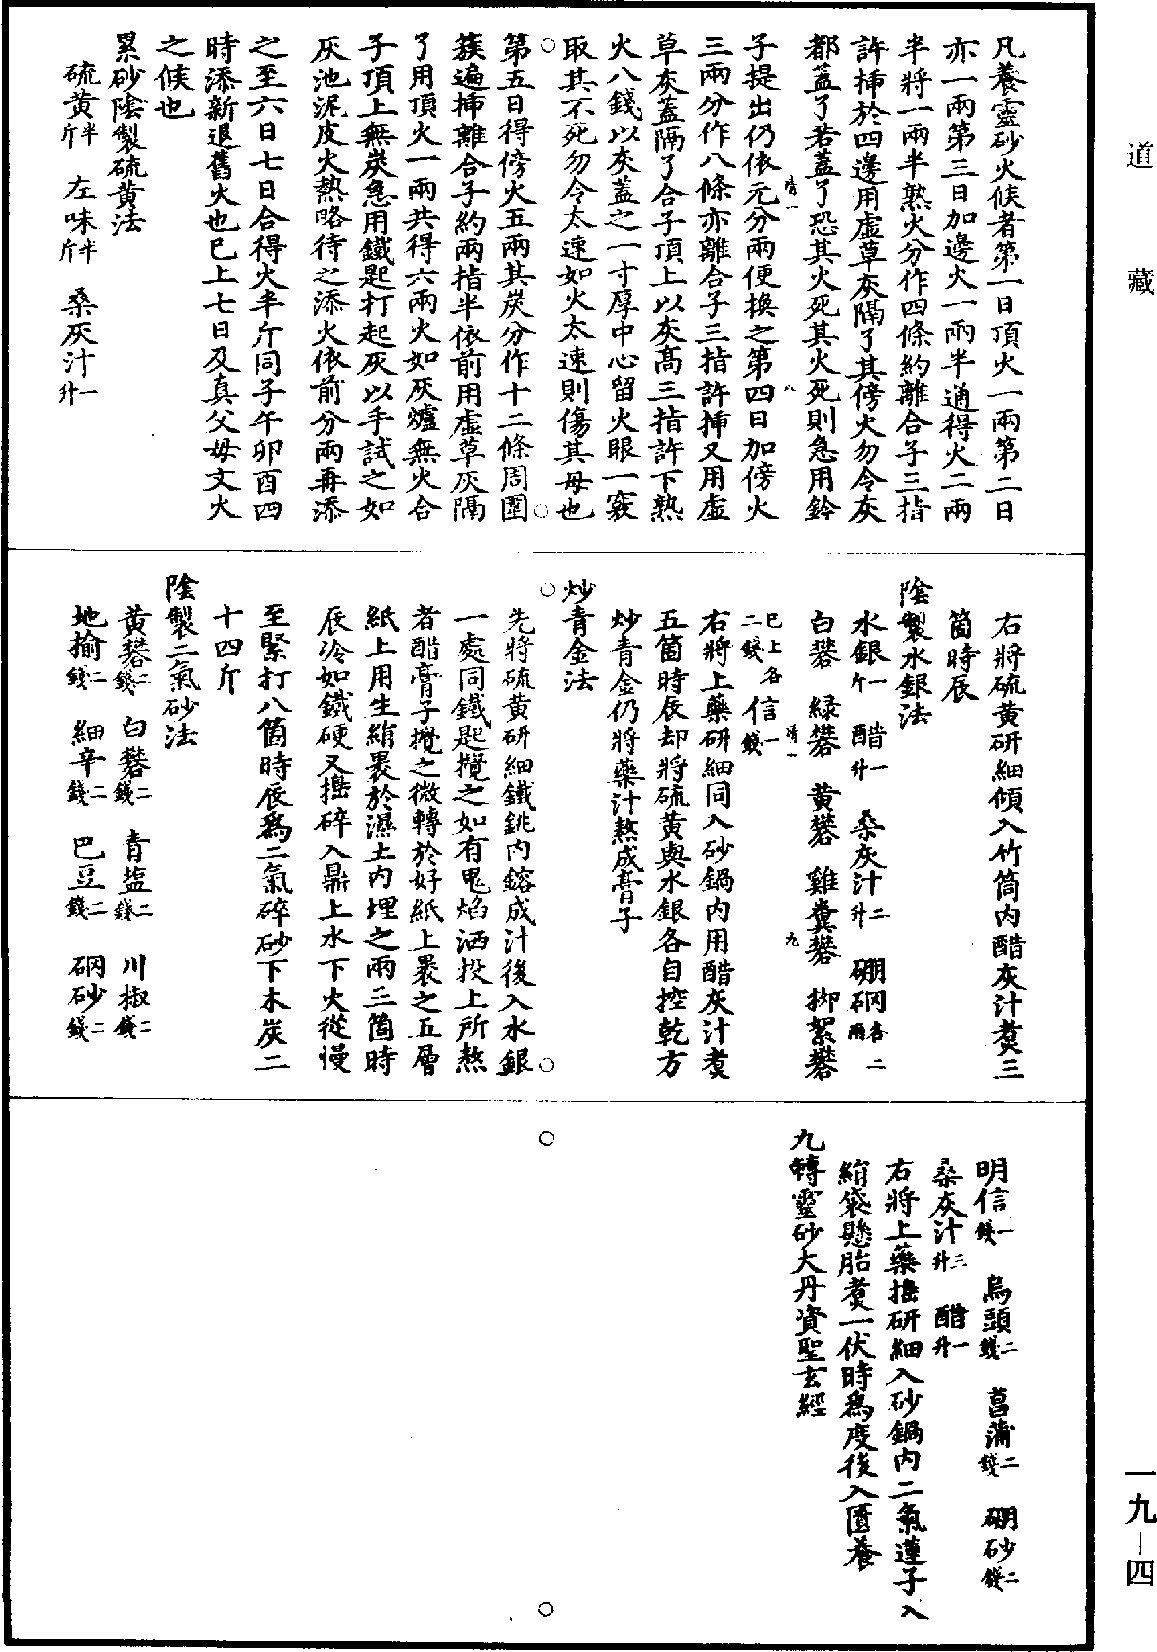 道藏
凡養靈砂火候者第一日頂火一兩第二日
亦一兩第三日加邊火一兩半通得火二兩
半將一兩半熟火分作四條約離合子三指
許揷於四邊用虛草灰隔了其傍火勿令灰
都蓋了若蓋了恐其火死其火死則急用鈐
子提出仍依元分兩便換之第四日加傍火
三兩分作八條亦離合子三指許揷又用虛
草灰蓋隔了合子頂上以灰高三指許下熟
火八錢以灰蓋之一寸厚中心留火眼一竅
取其不死勿令太速如火太速則傷其母也
第五日得傍火五兩其炭分作十二條周圍
蔟遍揷離合子約兩指半依前用虛草灰隔
了用頂火一兩共得六兩火如灰爐無火合
子頂上無炭急用鐵匙打起灰以手試之如
灰池泥皮火熱略待之添火依前分兩再添
之至六日七日合得火半斤同子午卯酉四
時添新退舊火也已上七日及真父母文火
之候也
累砂陰製硫黃法
硫黃半斤 左味半斤 桑灰汁一升
右將硫黃研細傾入竹筒內醋灰汁煑三
箇時辰
陰製水銀法
水銀一斤 醋一升 桑灰汁二升 硼硇各二兩
白礬 綠礬 黃礬 雞糞礬 柳絮礬
已上各二錢 信一錢
右將上藥研細同入砂鍋內用醋灰汁煑
五箇時辰却將硫黃與水銀各自控乾方
炒青金仍將藥汁熬成膏子
炒青金法
先將硫黃研細鐵銚內鎔成汁後入水銀
一處同鐵匙攪之如有鬼焰洒投上所熬
者醋膏子攪之微轉於好紙上裹之五層
紙上用生絹裹於濕土內埋之兩三箇時
辰冷如鐵硬又擣碎入鼎上水下火從慢
至緊打八箇時辰爲二氣碎砂下木炭二
十四斤
陰製二氣砂法
黃礬二錢 白礬二錢 青塩二錢 川椒二錢
地揄二錢 細辛二錢 巴豆二錢 硇砂二錢
明信一錢 烏頭二錢 菖蒲二錢 硼砂二錢
桑灰汁三升 醋一升
右將上藥擣研細入砂鍋內二氣蓮子入
絹袋懸胎煑一伏時爲度後入匱養
九轉靈砂大丹資聖玄經
一九—四